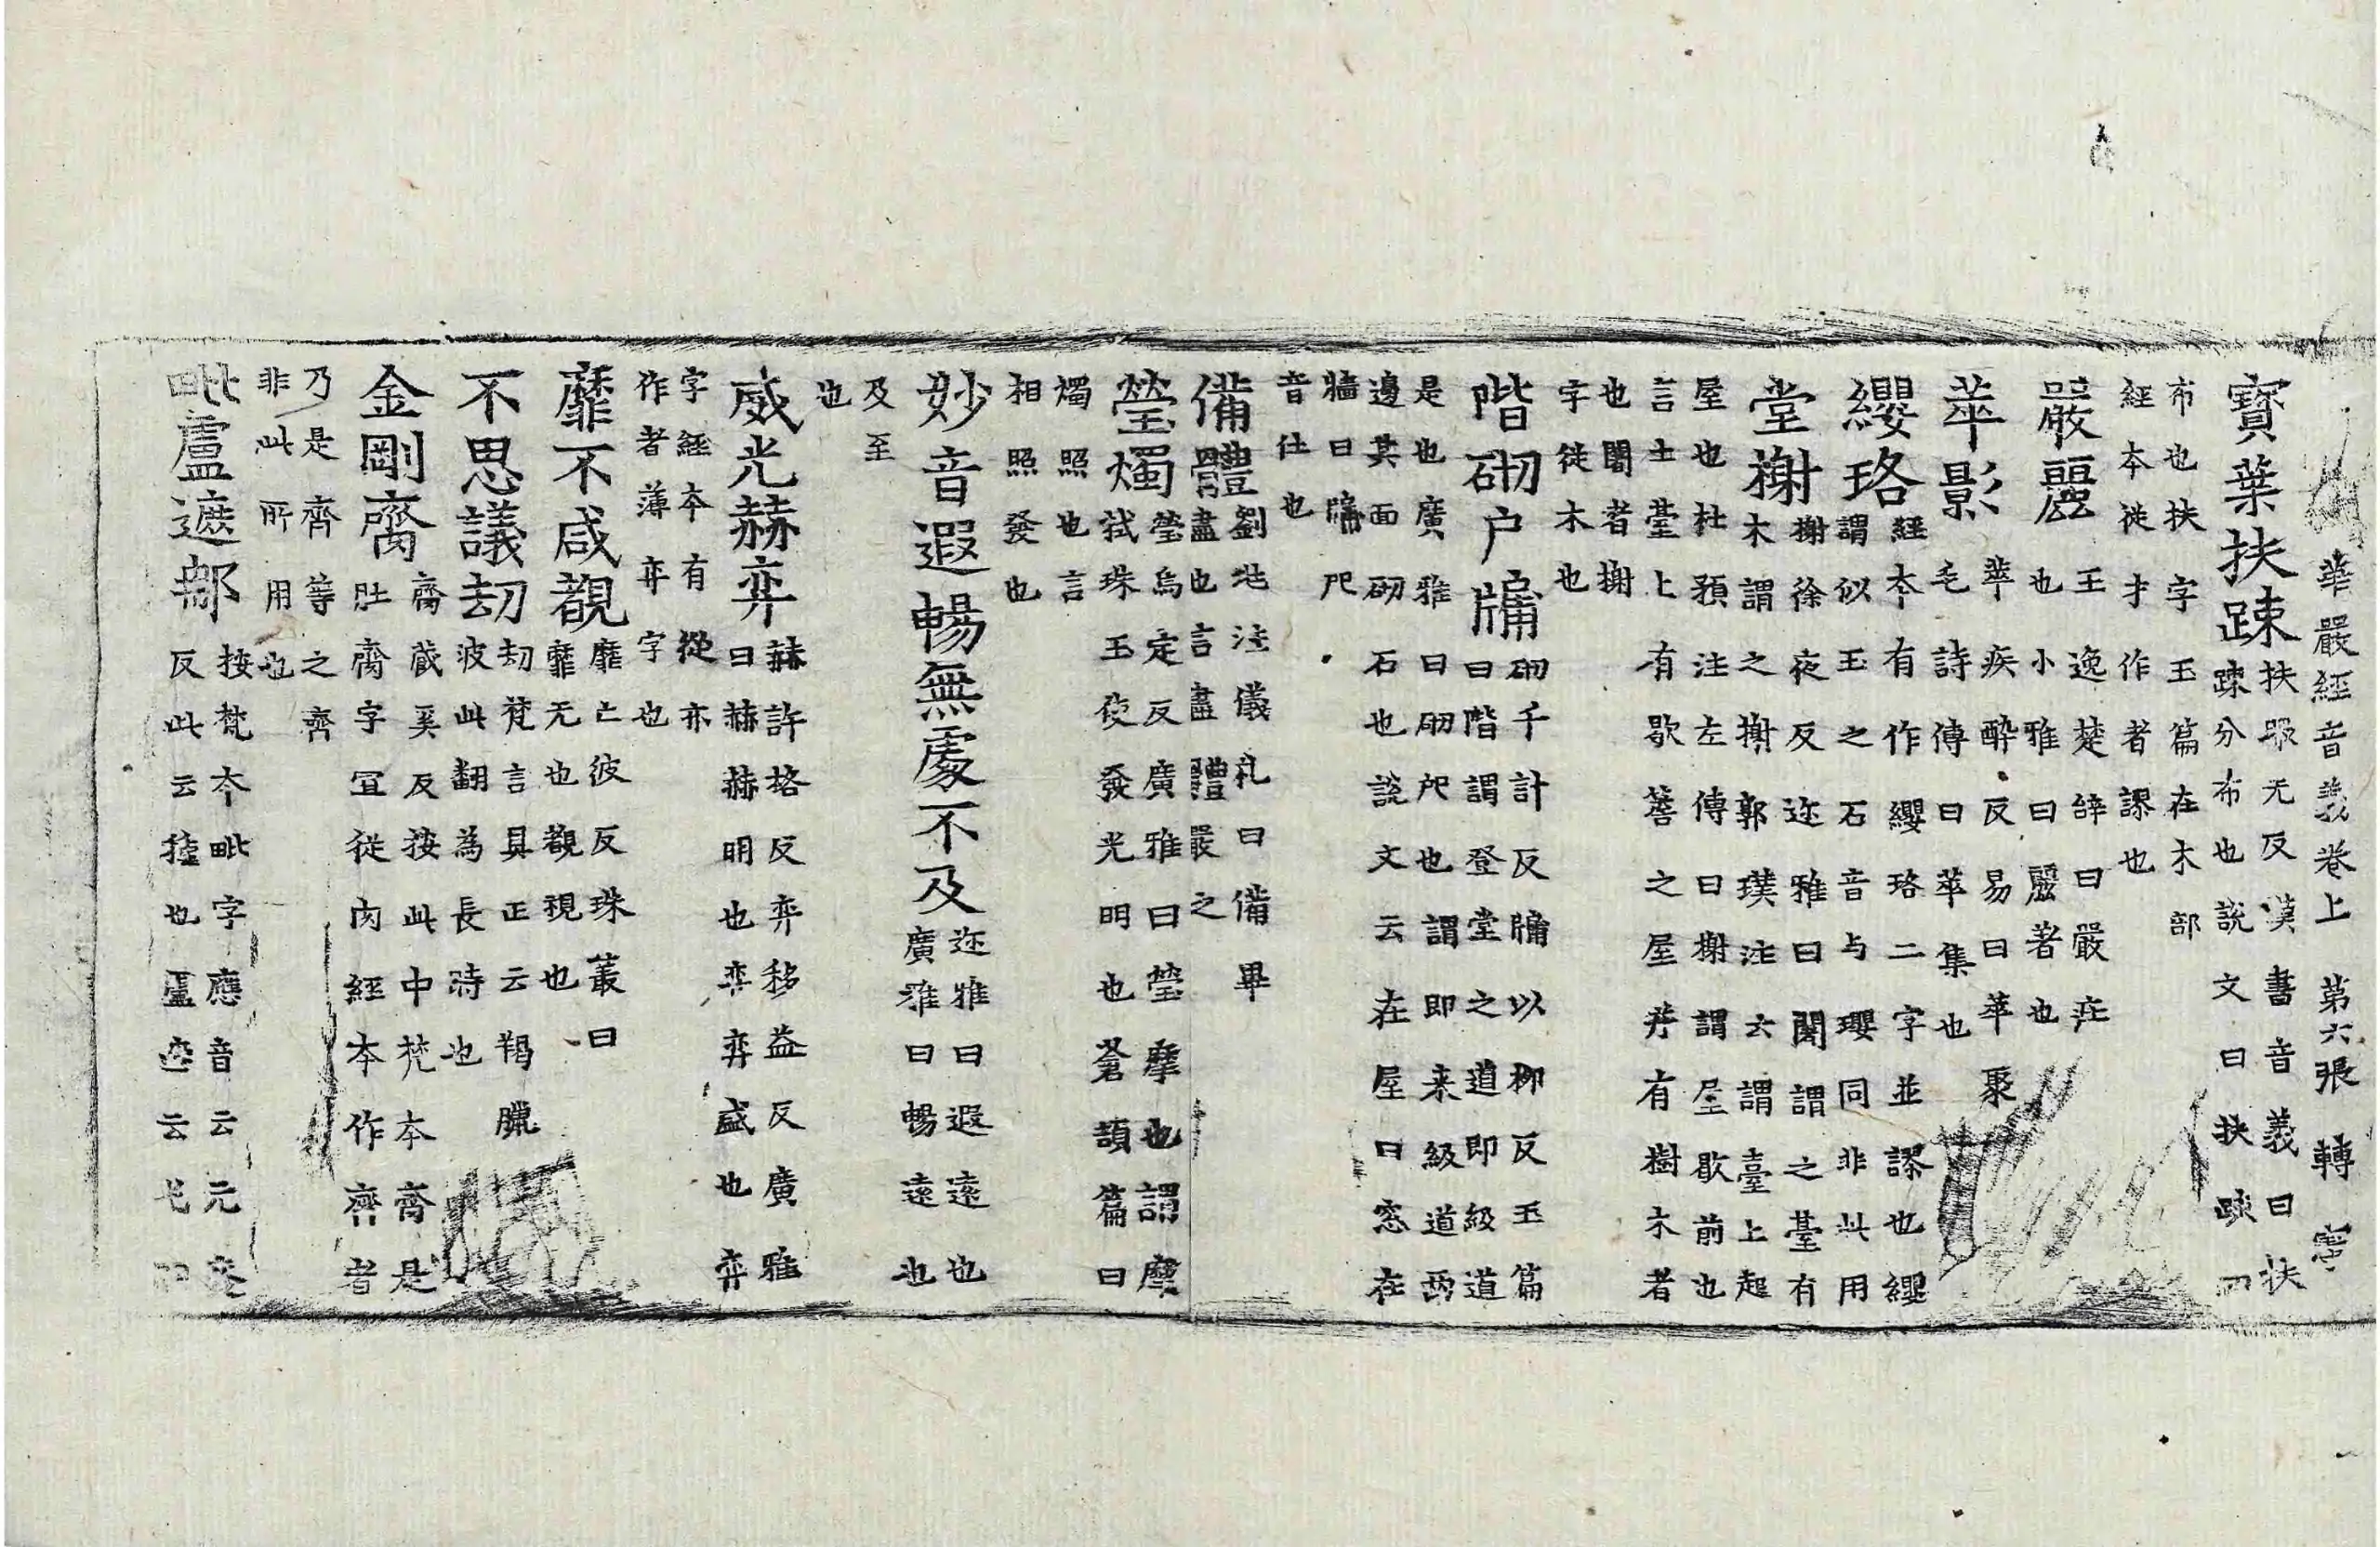 華嚴經音義卷上 第六張 轉 寧
寶葉扶踈扶踈无反漢書音義曰扶
踈分布也說文曰扶踈四
布也扶字玉篇在木部
經本從才作者謬也
嚴麗王逸楚辝曰嚴庄
也小雅曰麗著也
萃影萃疾醉反易曰萃聚
毛詩傳曰萃集也
纓珞經本有作纓珞二字並謬也纓
謂似玉之石音与瓔同非此用
堂榭榭徐夜反迩雅曰闍謂之臺有
木謂之榭郭璞注云謂臺上起
屋也杜預注左傳曰榭謂屋歇前也
言土臺上有歇簷之屋并有樹木者
也闍者榭
字從木也
階砌户牖砌千計反牖以柳反玉篇
曰階謂登堂之道即級道
是也廣雅曰砌戺也謂即来級道兩
邊其面砌石也說文云在屋曰窓在
牆曰牖戺
音仕也
備體劉兆注儀礼曰備畢
盡也言盡體嚴之
瑩燭瑩烏定反廣雅曰瑩摩也謂摩
拭珠玉使發光明也蒼頡篇曰
燭照也言
相照發也
妙音遐暢無處不及迩雅曰遐遠也
廣雅曰暢遠也
及至
也
威光赫弈赫許格反弈移益反廣雅
曰赫赫明也弈弈盛也弈
字經本有從亦
作者薄弈字也
靡不咸覩靡亡彼反珠叢曰
靡无也覩視也
不思議劫劫梵言具正云羯臘
波此翻為長時也
金剛齎齎戴奚反按此中梵本齎是
肚齎字冝從肉經本作齊者
乃是齊等之齊
非此所用也
毗盧遮那按梵本毗字應音云无废
反此云種也盧